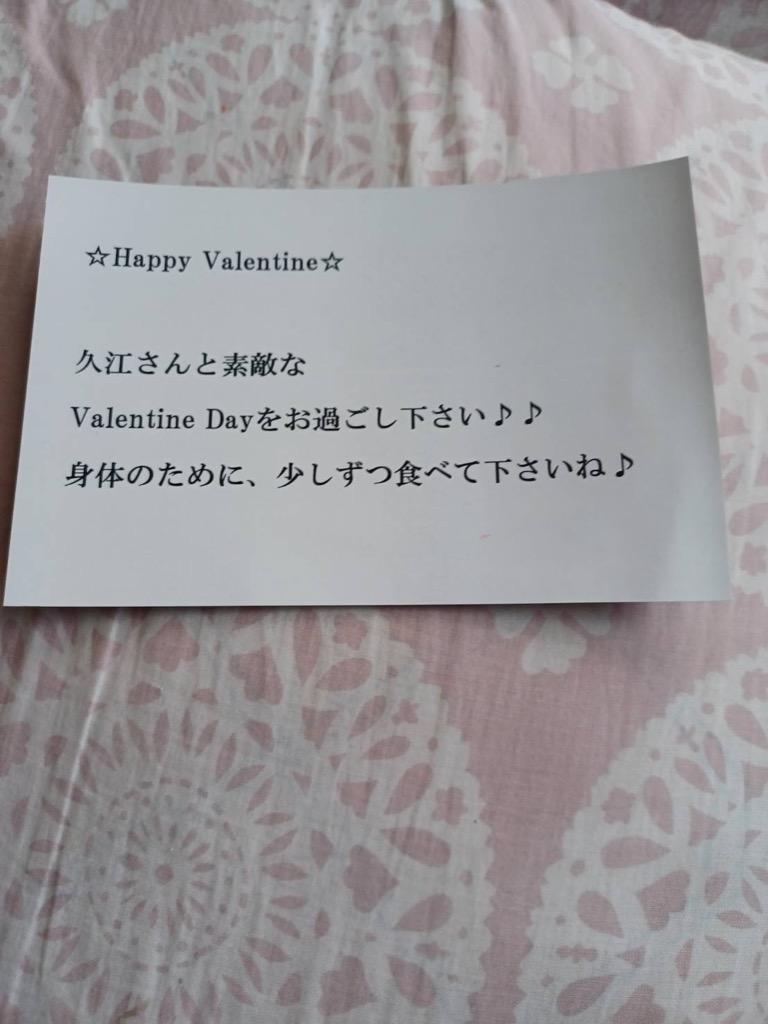 ☆Happy Valentine☆
久江さんと素敵な
Valentine Dayをお過ごし下さい♪♪
身体のために、少しずつ食べて下さいね♪